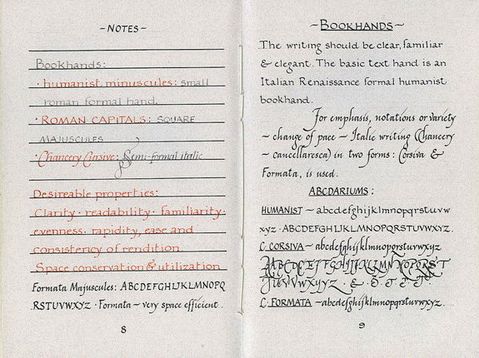 ~ NOTES ~
Bookhands:
· humanist minuscules: small
roman formal hand.
· ROMAN CAPITALS: SQUARE
MAJUSCULES
· Chancery Cursive: Semi-formal italic
Desireable properties:
Clarity · readability · familiarity·
evenness· rapidity, ease and
consistency of rendition
Space conservation & utilization
Formata Majuscules: ABCDEFGHIJKLMNOPQ
RSTUVWXYZ · Formata ~ very space efficient.
8
~ BOOKHANDS ~
The writing should be clear, familiar
& elegant. The basic text hand is an
Italian Renaissance formal humanist
bookhand.
For emphasis, notations or variety
~ change of pace ~ Italic writing (Chancery
~ cancellaresca) in two forms: Corsiva &
Formata, is used.
ABCDARIUMS:
HUMANIST ~ abcdefghijklmnopqrstuvw
xyz · ABCDEFGHIJKLMNOPQRSTUVWXYZ.
C. CORSIVA ~ abcdefghijklmnopqrstuvwxyz
ABCDEFGHIJKLMNOPQRST
C. FORMATA ~ abcdefghijklmnopqrstuvwxyz.
9